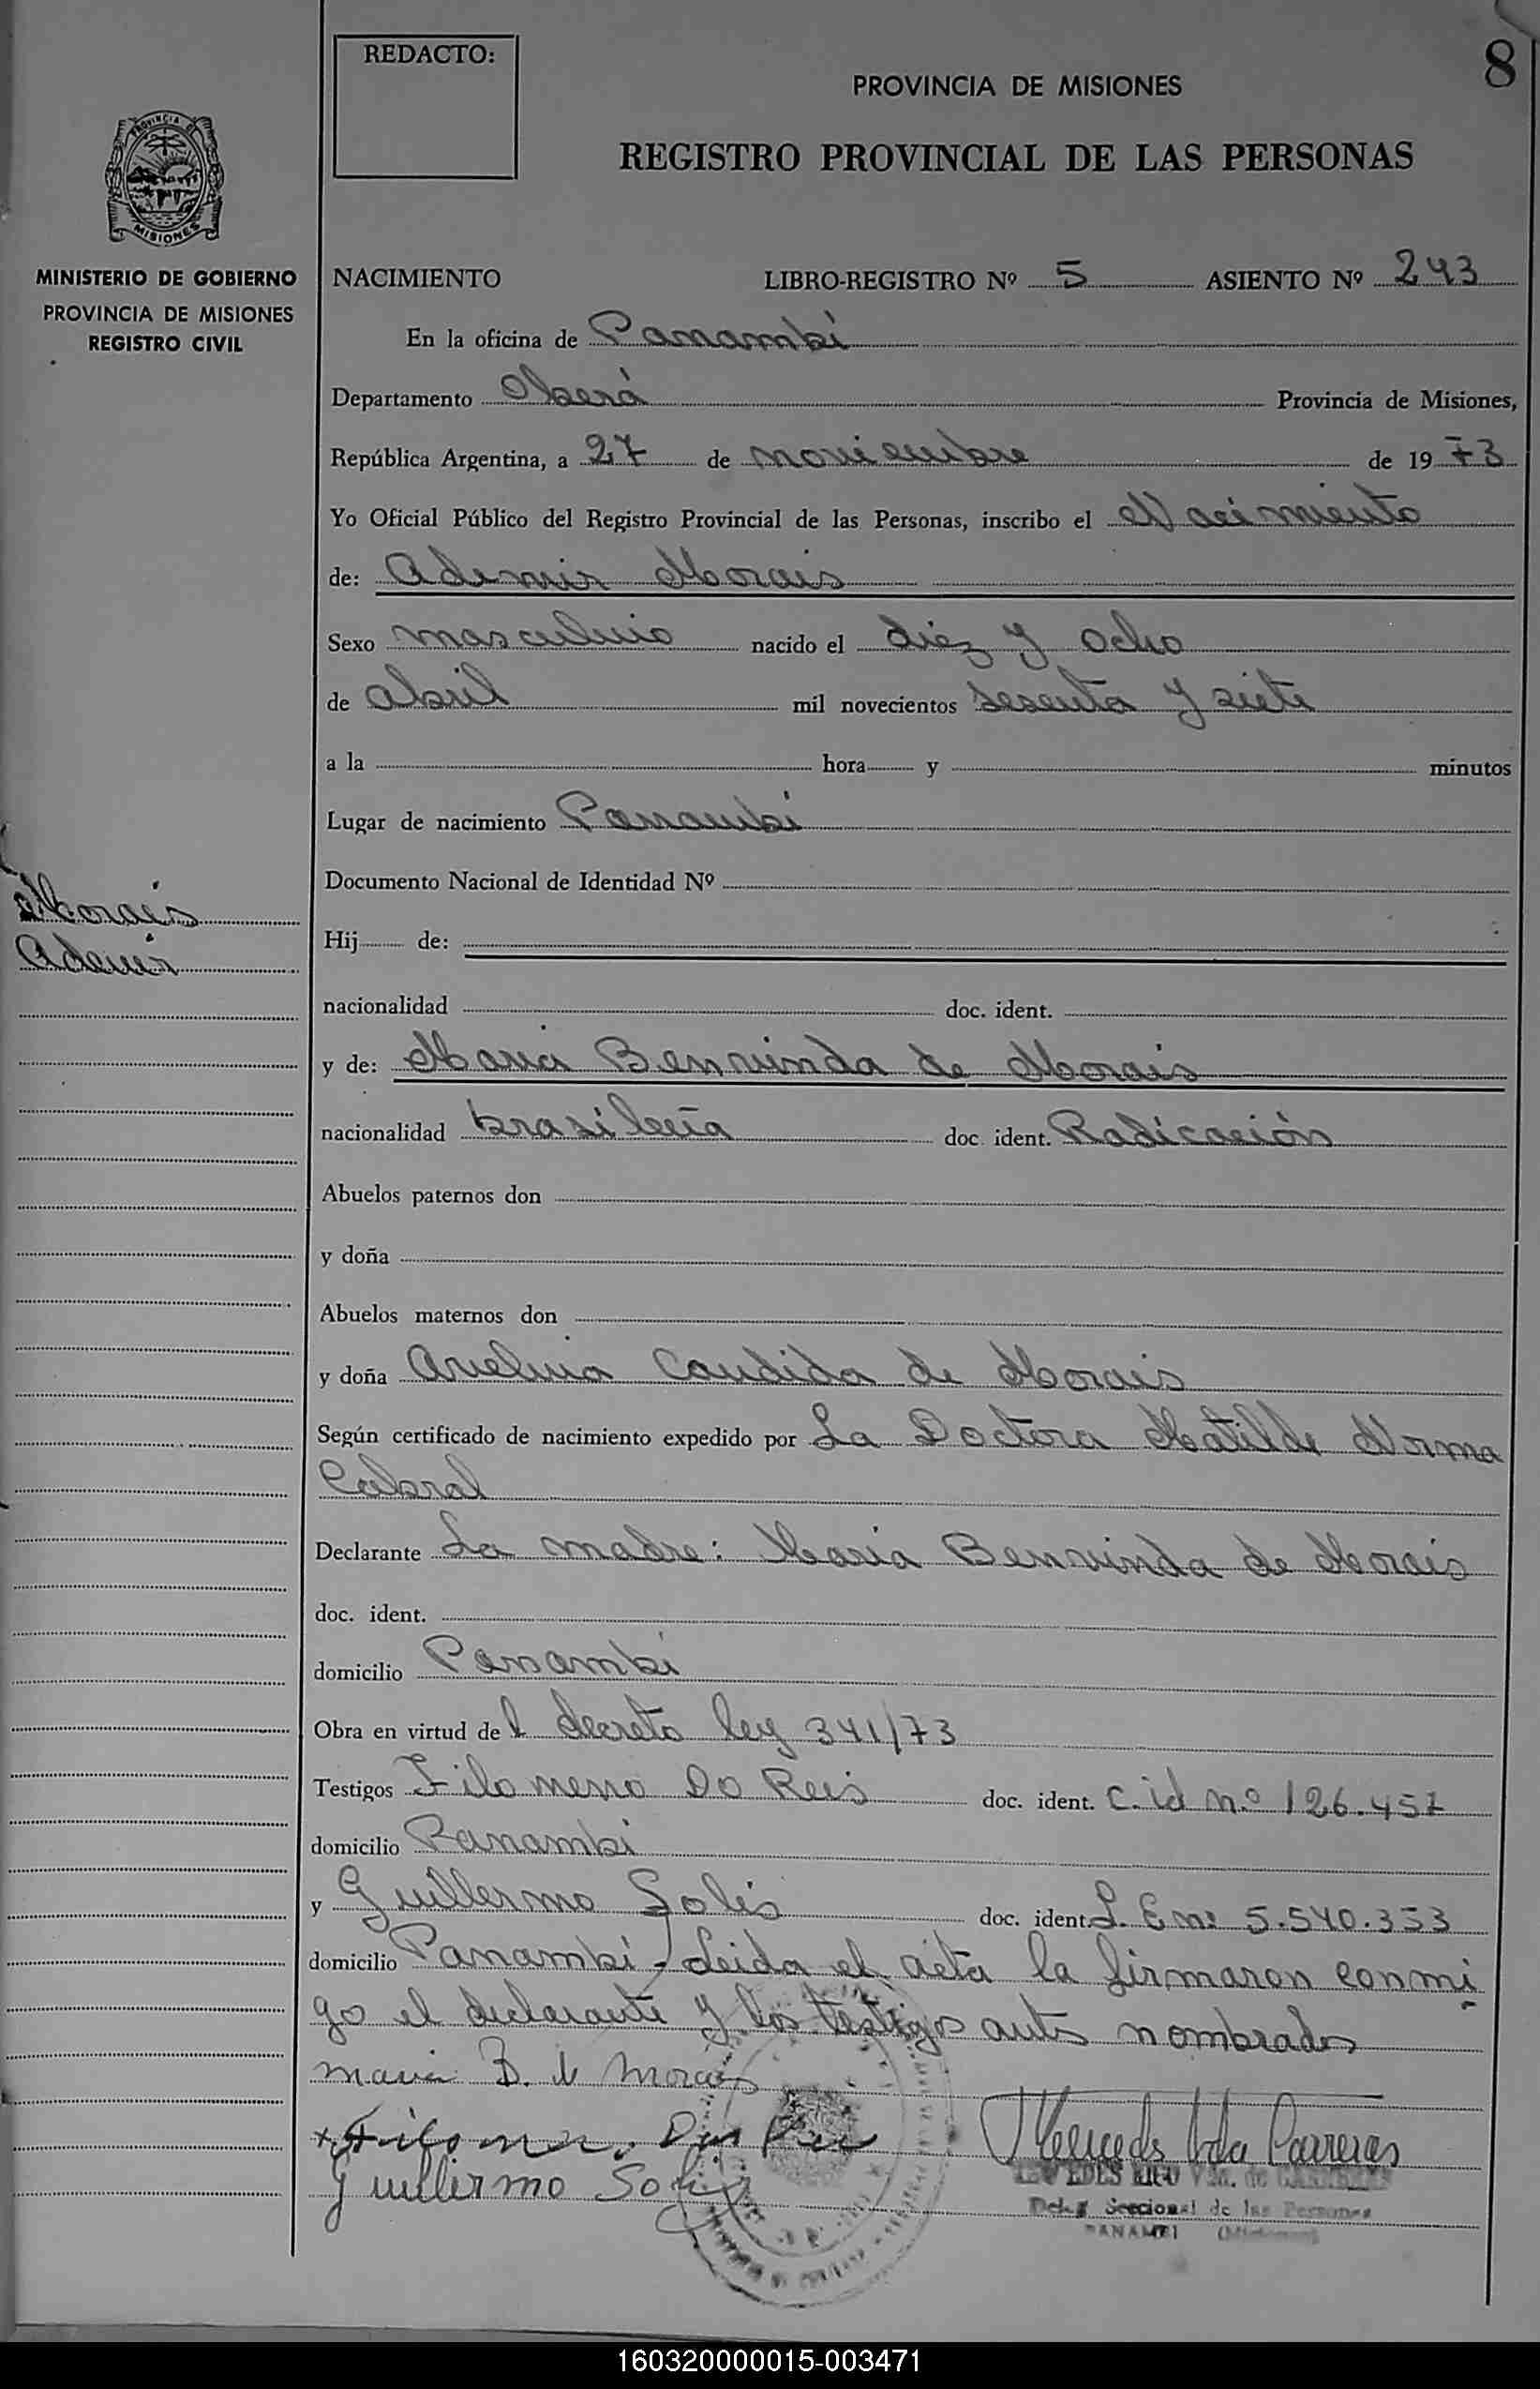 8
REDACTO:
PROVINCIA DE MISIONES
REGISTRO PROVINCIAL DE LAS PERSONAS
PROVINCIA DE
MISIONES
MINISTERIO DE GOBIERNO
PROVINCIA DE MISIONES
REGISTRO CIVIL
NACIMIENTO LIBRO-REGISTRO Nº 5 ASIENTO Nº 243
En la oficina de Panambí
Departamento Oberá Provincia de Misiones,
República Argentina, a 27 de noviembre de 1973
Yo Oficial Público del Registro Provincial de las Personas, inscribo el Nacimiento
de: Ademir Morais
Sexo masculino nacido el diez y ocho
de abril mil novecientos sesenta y siete
a la hora y minutos
Lugar de nacimiento Panambí
Documento Nacional de Identidad Nº
Morais
Ademir
Hij de:
nacionalidad doc. ident.
y de: Maria Benvinda de Morais
nacionalidad brasileña doc ident. Radicación
Abuelos paternos don
y doña
Abuelos maternos don
y doña Avelina Candida de Morais
Según certificado de nacimiento expedido por La Doctora Matilde Norma
Cabral
Declarante La madre: Maria Benvinda de Morais
doc. ident.
domicilio Panambi
Obra en virtud del decreto ley 341/73
Testigos Filomeno Do Reis doc. ident. C. id n.º 126.457
domicilio Panambi
y Guillermo Solis doc. ident. L. E nº 5.540.353
domicilio Panambí, Leida el acta la firmaron conmi
go el declarante y los testigos antes nombrados
maria B. de Morais
Guillermo Solis
Mercedes Carreras
Vda. de
Seccional de las Personas
PANAMBI (Misiones)
160320000015-003471